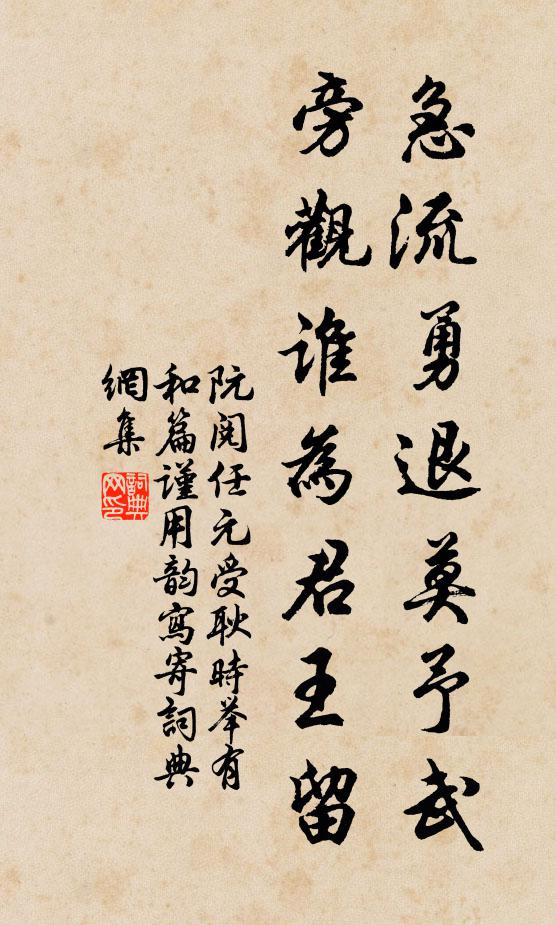 急流勇退莫予武
旁觀誰為君王留
阮閱任元受耿時举有
和篇谨用韵寫寄詞典
網集
詞典網印